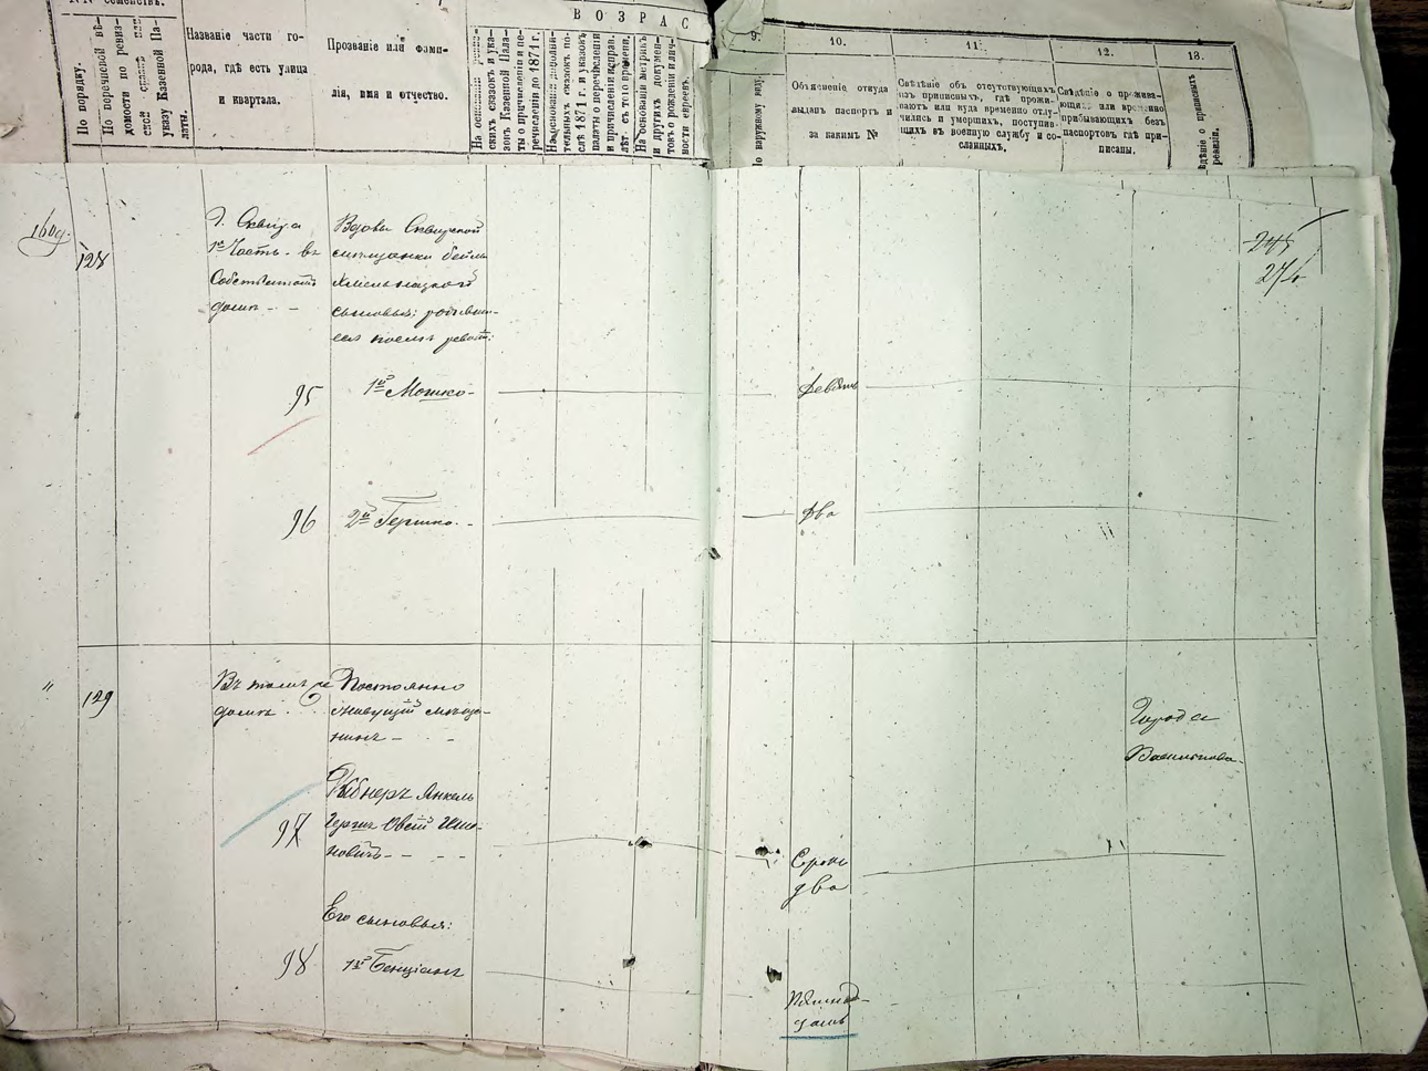 №№ семействъ.
В О З Р А С
По порядку.
По перечневой вѣ-
домости по ревиз-
указу Казенной Па-
латы.
Названіе части го-
рода, гдѣ есть улица
и квартала.
Прозваніе или фами-
лія, имя и отчество.
На основаніи ревиз-
скихъ сказокъ и ука-
зовъ Казенной Пала-
ты о причисленіи и пе-
речисленіи до 1871 г.
На основаніи дополни-
тельныхъ сказокъ по-
слѣ 1871 г. и указовъ
палаты о перечисленіи
и причисленіи исправ.
лѣт. съ того времени.
На основаніи метрикъ
и другихъ докумен-
товъ о рожденіи и лич-
ности евреевъ.
9.
По наружному виду.
10.
Объясненіе откуда
выданъ паспортъ и
за какимъ №
11.
Свѣдѣніе объ отсутствующихъ
изъ приписныхъ, гдѣ прожи-
ваютъ или куда временно отлу-
чились и умершихъ, поступив-
щихъ въ военную службу и со-
сланныхъ.
12.
Свѣдѣніе о прожива-
ющихъ или временно
прибывающихъ безъ
паспортовъ гдѣ при-
писаны.
13.
ревизіи.
160д.
128
г. Сквира
1я Часть. въ
Собственномъ
домѣ - -
Вдовы Сквирской
мѣщанки Бейлы
Хмельницкой
сыновья: родивші-
еся послѣ ревиз:
245
274
95
1й Мошко -
Девять
96
2й Гершко. -
Два
"
129
Въ томъ же
домѣ.
Постоянно
живущій мѣща-
нинъ - -
Города
Василькова.
97
Янкель
новичъ - - - -
Сорокъ
два
Его сыновья:
98
1й Бенціанъ
Пятнад-
цать